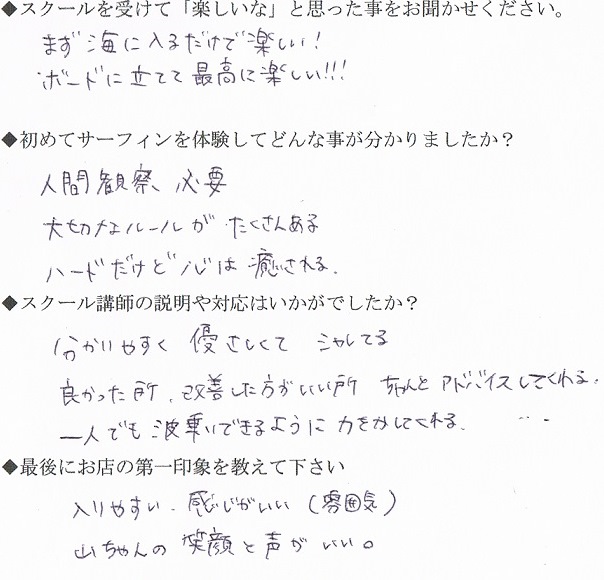 ◆スクールを受けて「楽しいな」と思った事をお聞かせください。
まず海に入るだけで楽しい！
ボードに立てて最高に楽しい!!!
◆初めてサーフィンを体験してどんな事が分かりましたか？
人間観察 必要
大切なルールが たくさんある
ハードだけど 心は 癒される.
◆スクール講師の説明や対応はいかがでしたか？
分かりやすく 優さしくて シャレてる
良かった所、改善した方がいい所 ちゃんとアドバイスしてくれる.
一人でも波乗りできるように力をかしてくれる. ...
◆最後にお店の第一印象を教えて下さい
入りやすい、感じがいい（雰囲気）
山ちゃんの笑顔と声がいい。